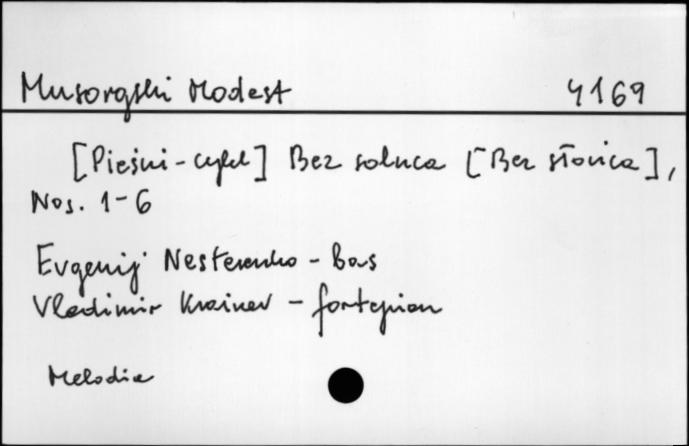 Musorgski Modest 4169
[Pieśni-cykl] Bez solnca [Bez słońca],
Nos. 1-6
Evgenij Nesterenko - bas
Vladimir Krainev - fortepian
Melodia